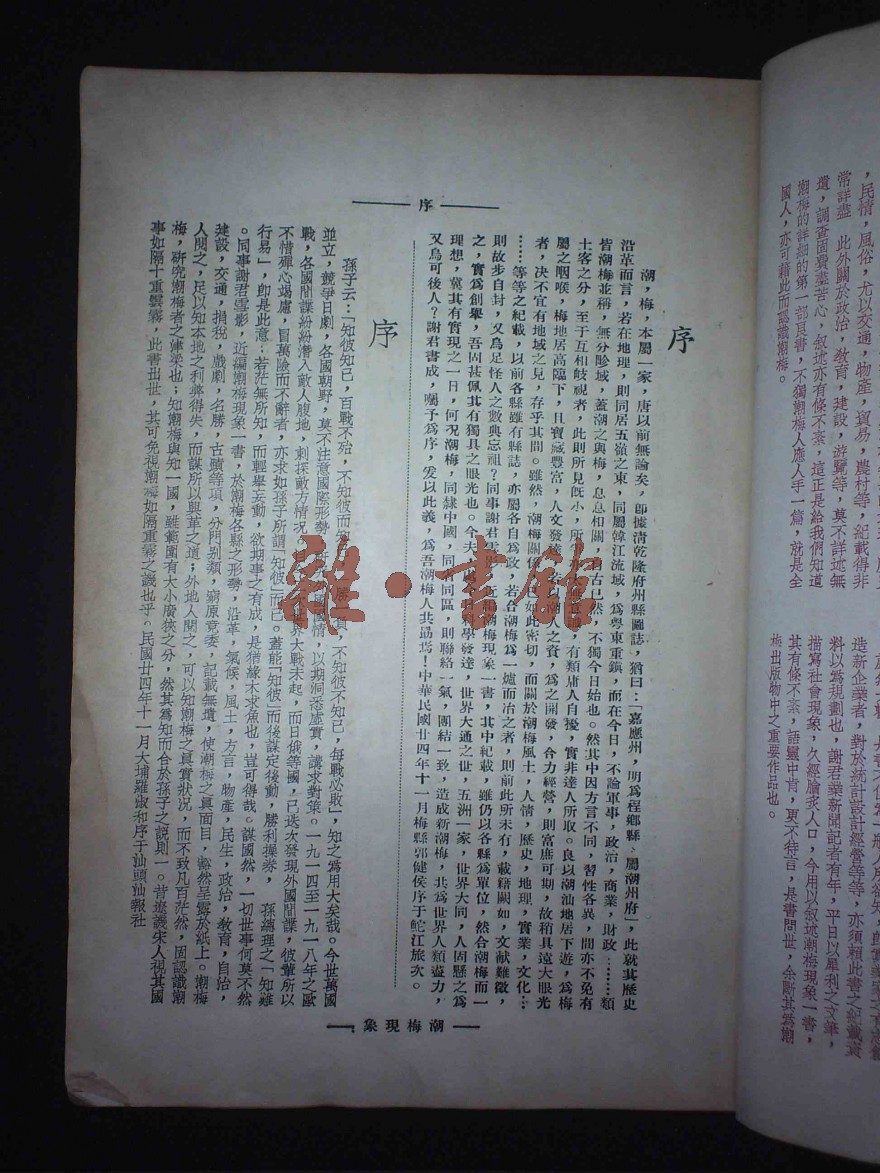 ，民情，風俗，尤以交通，物產，貿易，農村等，紀載得非
常詳盡　此外關於政治，教育，建設，遊覽等，莫不詳述無
遺，調查固費盡苦心，叙述亦有條不紊，這正是給我們知道
潮梅的詳細的第一部良書，不獨潮梅人應人手一篇，就是全
國人，亦可藉此而認識潮梅。
造新企業者，對於統計設計經營等等，亦須賴此書之紀載資
料以爲規劃也，謝君業新聞記者有年，平日以犀利之文筆，
描寫社會現象，久經膾炙人口，今用以叙述潮梅現象一書，
其有條不紊，語靈中肯，更不待言，是書問世，余斷其爲潮
梅出版物中之重要作品也。
序
序
潮，梅，本屬一家，唐以前無論矣，卽據清乾隆府州縣圖誌，猶曰：「嘉應州，明爲程鄉縣，屬潮州府」，此就其歷史
沿革而言，若在地理，則同居五嶺之東，同屬韓江流域，爲粵東重鎮，而在今日，不論軍事，政治，商業，財政……類
皆潮梅並稱，無分畛域，蓋潮之與梅，息息相關，古已然，不獨今日始也。然其中因方言不同，習性各異，間亦不免有
土客之分，至于互相歧視者，此則所見既小，所 有類庸人自擾，實非達人所取。良以潮汕地居下遊，爲梅
屬之咽喉，梅地居高臨下，且寶藏豐富，人文發達， 以潮人之資，爲之開發，合力經營，則富庶可期，故稍具遠大眼光
者，決不宜有地域之見，存乎其間。雖然，潮梅關係 如此密切，而關於潮梅風土，人情，歷史，地理，實業，文化…
……等等之紀載，以前各縣雖有縣誌，亦屬各自爲政，若合潮梅爲一爐而冶之者，則前此所未有，載籍闕如，文献難徵，
則故步自封，又烏足怪人之數典忘祖？同事謝君雪影， 潮梅現象一書，其中紀載，雖仍以各縣爲單位，然合潮梅而一
之，實爲創舉，吾固甚佩其有獨具之眼光也。今夫 科學發達，世界大通之世，五洲一家，世界大同，人固懸之爲
理想，冀其有實現之一日，何况潮梅，同隸中國，同 同區，則聯絡一氣，團結一致，造成新潮梅，共爲世界人類盡力，
又烏可後人？謝君書成，囑予爲序，爰以此義，爲吾潮梅人共勗焉！中華民國廿四年十一月梅縣郭健侯序于鮀江旅次。
序
孫子云：「知彼知己，百戰不殆，不知彼而知 勝 負，不知彼不知己，每戰必敗」，知之爲用大矣哉。今世萬國
並立，競爭日劇，各國朝野，莫不注意國際形勢， 國情，以期洞悉虛實，講求對策。一九一四至一九一八年之歐
戰，各國間諜紛紛潛入敵人腹地，刺探敵方情况。 世界大戰未起，而日俄等國，已迭次發現外國間諜，彼輩所以
不惜殫心竭慮，冒萬險而不辭者，亦求如孫子所謂「知彼」而已。蓋能「知彼」而後謀定後動，勝利操券，　孫總理之「知難
行易」，卽是此意：若茫無所知，而輕舉妄動，欲期事之有成，是猶緣木求魚也，豈可得哉。謀國然，一切世事何莫不然
。同事謝君雪影，近編潮梅現象一書，於潮梅各縣之形勢，沿革，氣候，風土，方言，物產，民生，政治，教育，自治，
建設，交通，捐稅，戲劇，名勝，古蹟等項，分門別類，窮原竟委，記載無遺，使潮梅之眞面目，豁然呈露於紙上。潮梅
人閱之，足以知本地之利弊得失，而謀所以興革之道；外地人閱之，可以知潮梅之眞實狀况，而不致凡百茫然，固認識潮
梅，研究潮梅者之津梁也；知潮梅與知一國，雖範圍有大小廣狹之分，然其爲知而合於孫子之說則一。昔 議宋人視其國
事如隔十重雲霧，此書出世，其可免視潮梅如隔重霧之譏也乎。民國廿四年十一月大埔羅淑和序于汕頭汕報社
潮梅現象
雜·書館